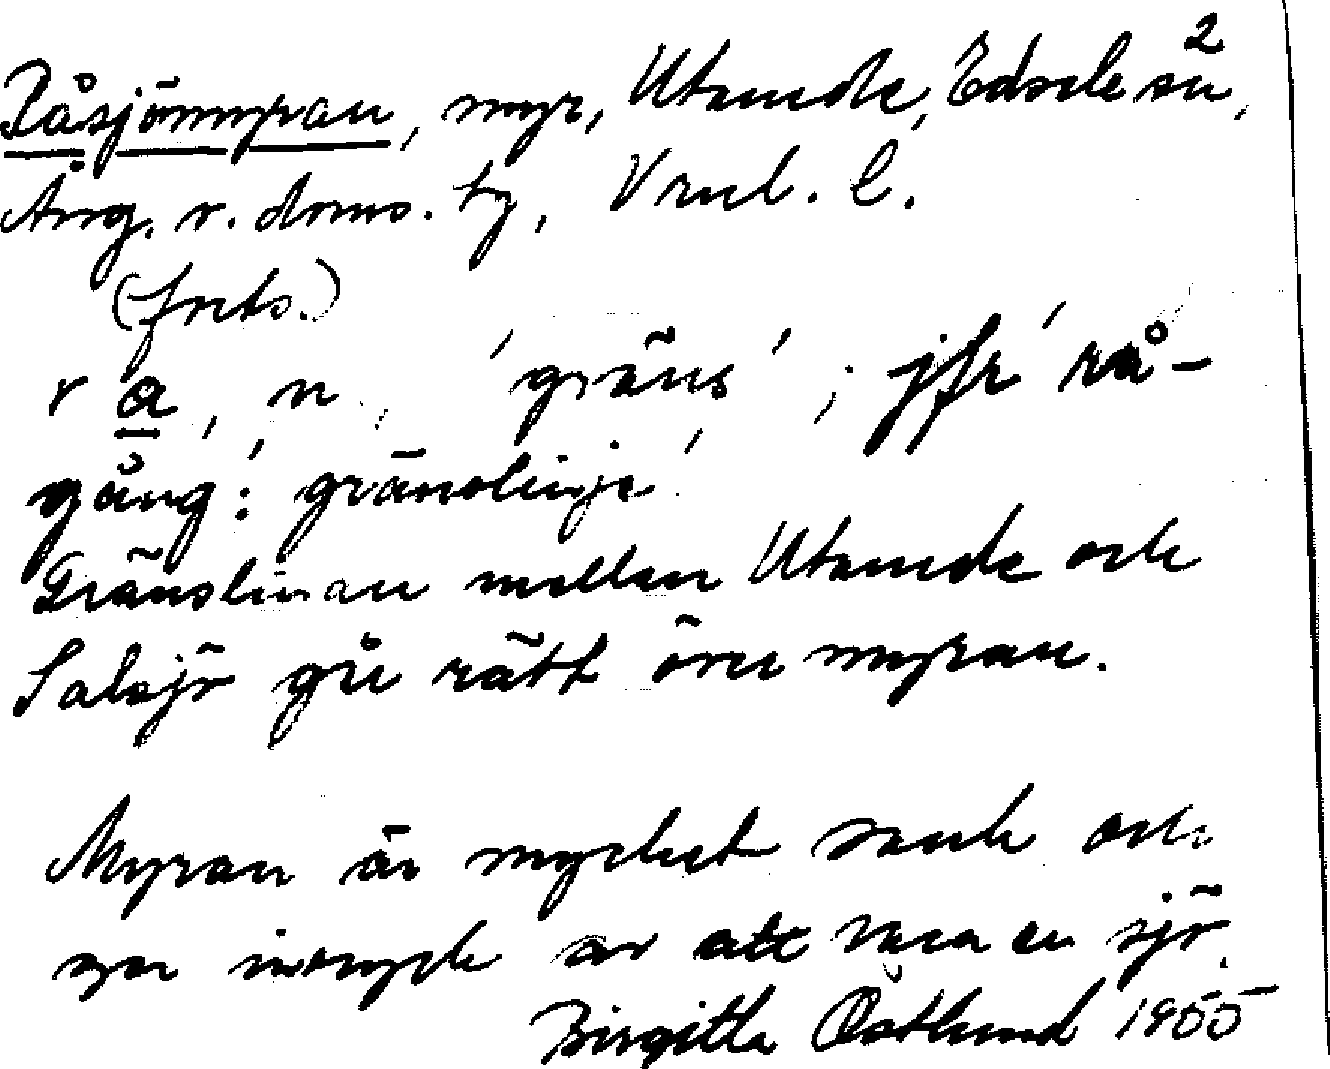 Råsjömyran, myr, Utanede, Edsele sn 2,
Ång. v. doms. ty, Vnl. l.
(forts.)
r a, n., 'gräns'; jfr rå-
gång: 'gränslinje'
Gränslinjen mellan Utanede och
Salsjö går rätt över myran.
Myran är mycket sank och
ger intryck av att vara en sjö.
Birgitta Östlund 1955